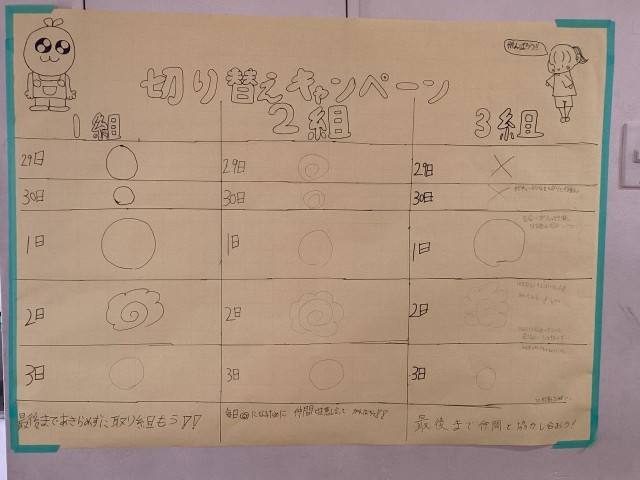 がんばろう!!
切り替えキャンペーン
1組 2組 3組
29日 29日 29日
30日 30日 30日
1日 1日 1日
2日 2日 2日
3日 3日 3日
最後まであきらめずに取り組もう!!
毎日 になるために 仲間
最後まで仲間と協力し合おう!